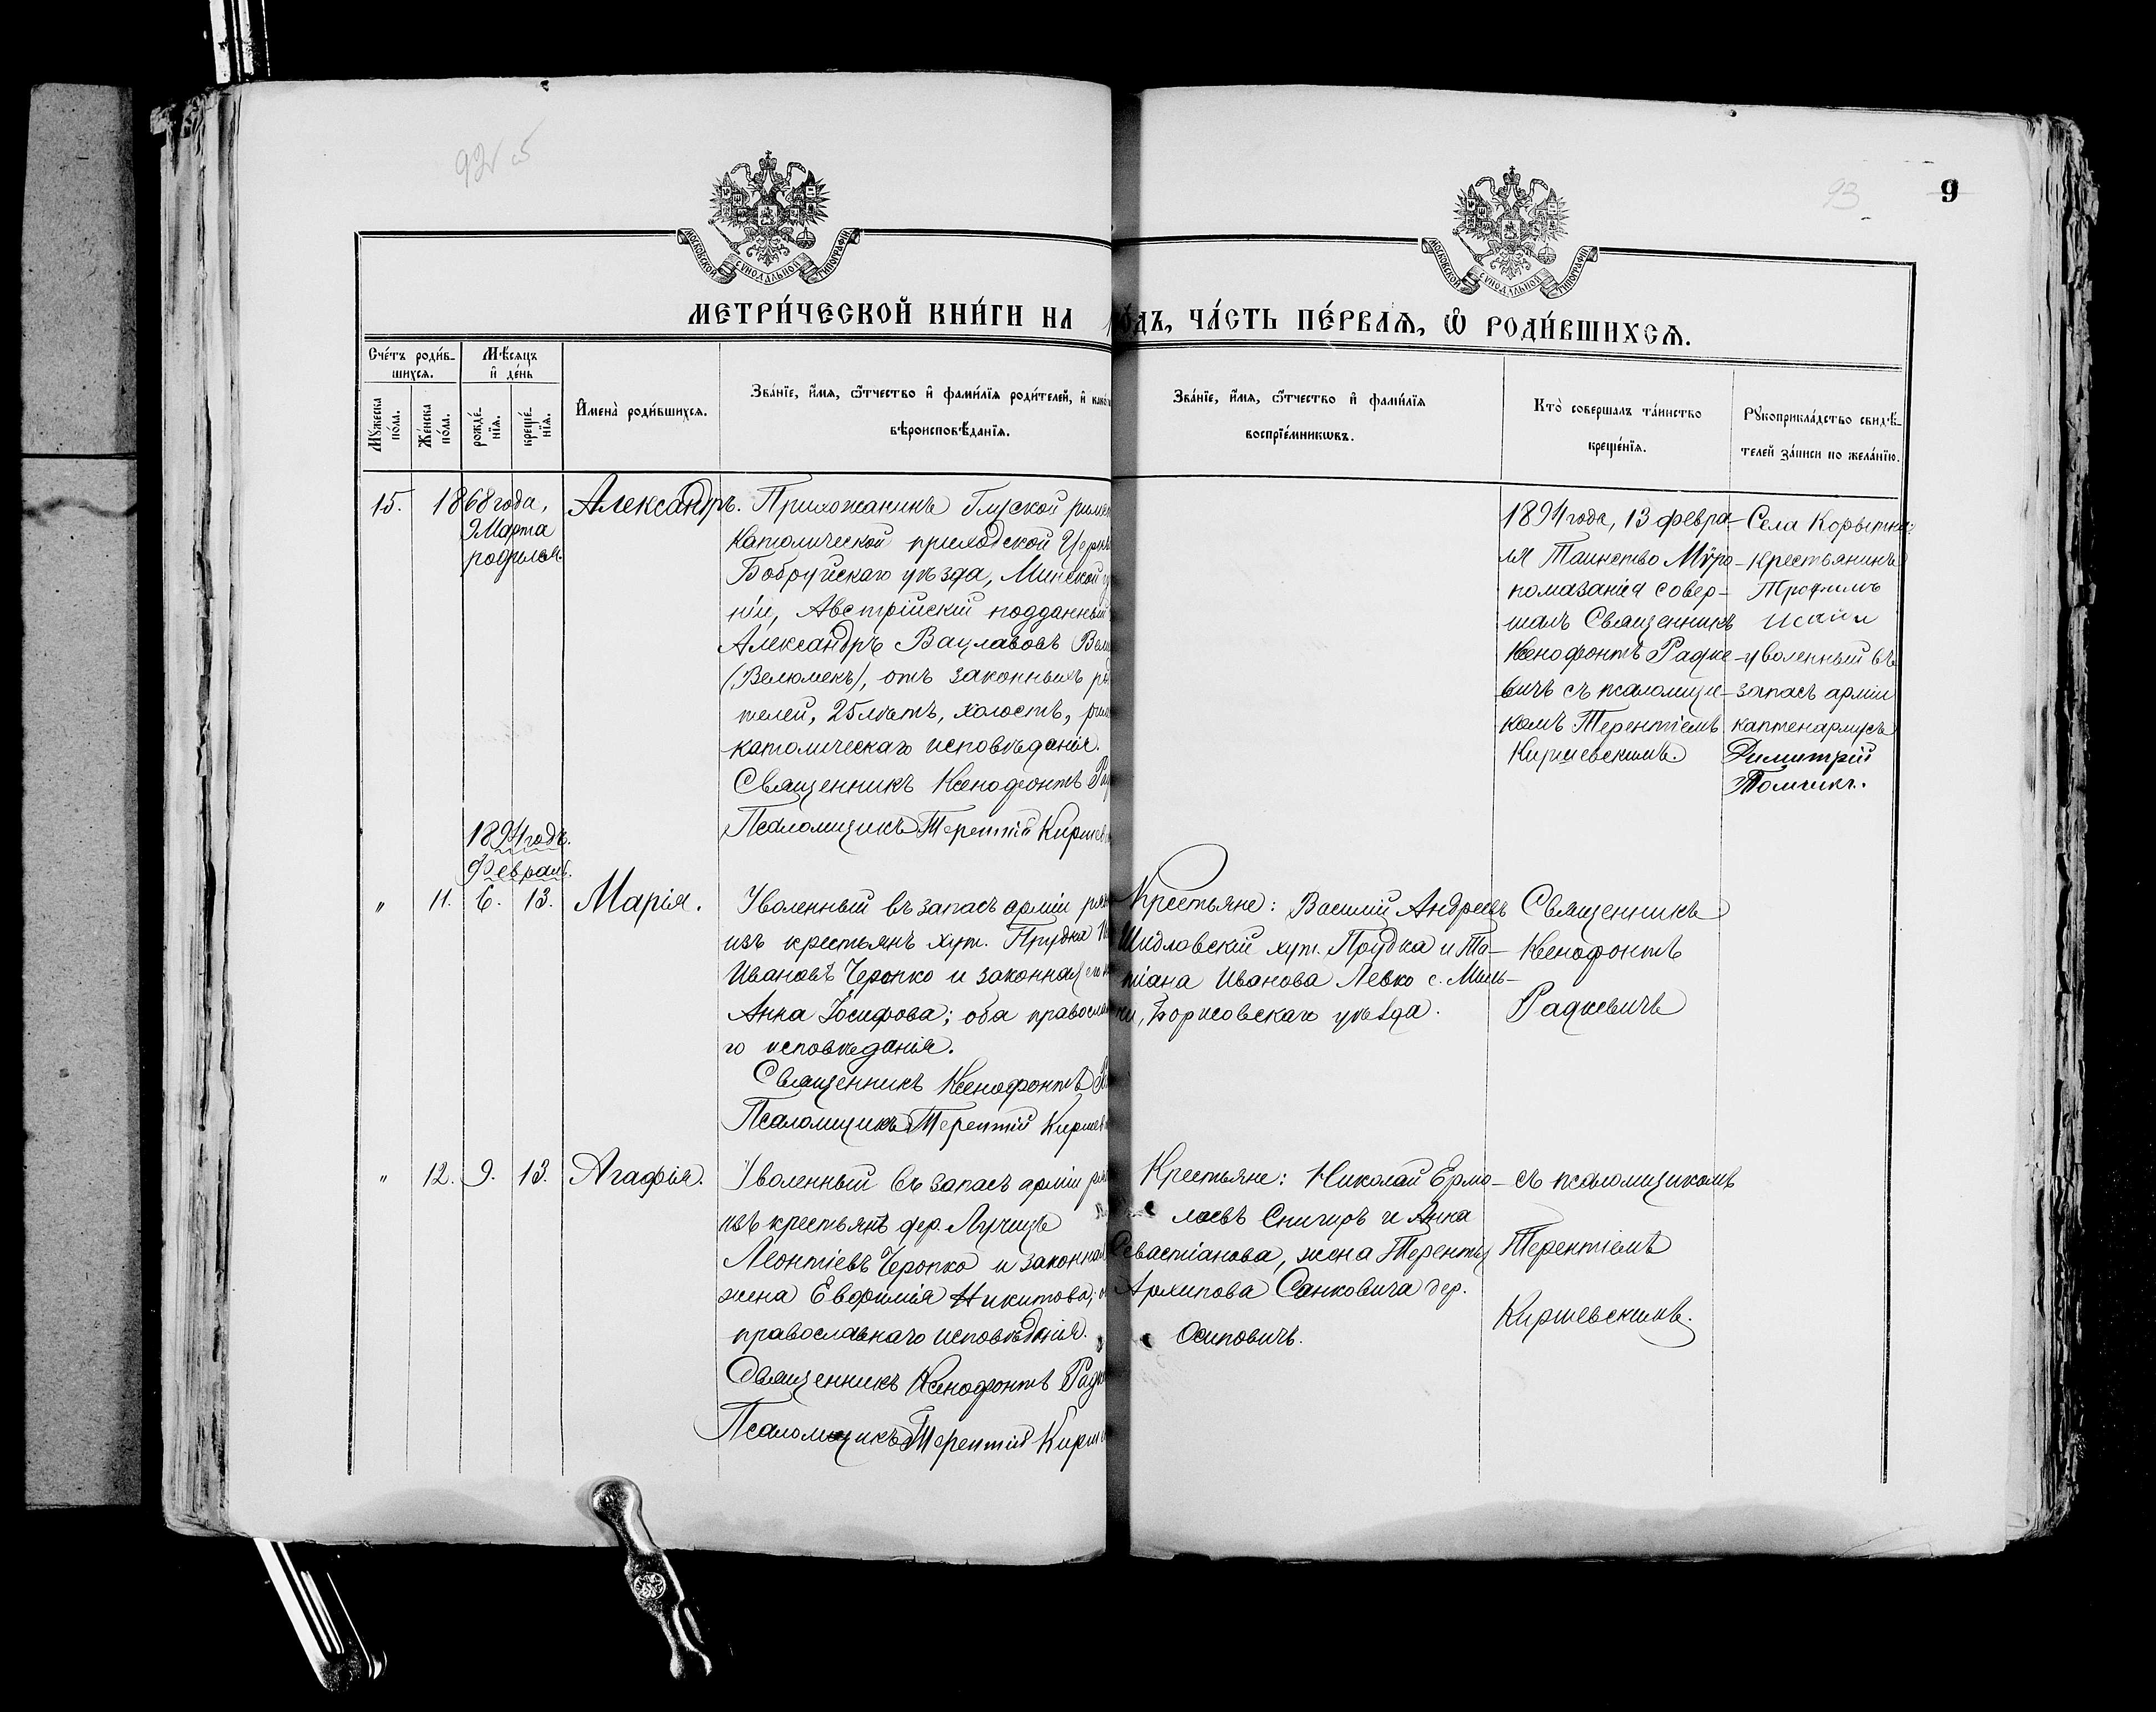 92 об
93
9
МОСКОВСКОЙ СѴНОДАЛЬНОЙ ТИПОГРАФІИ
МОСКОВСКОЙ СѴНОДАЛЬНОЙ ТИПОГРАФІИ
МЕТРИ́ЧЕСКОЙ КНИ́ГИ НА
ГО́ДЪ, ЧА́СТЬ ПЕ́РВАѦ, Ѽ РОДИ́ВШИХСѦ.
Сче́тъ роди́в-
шихсѧ.
Мꙋ́жеска по́ла.
Же́нска по́ла.
Мѣ́сѧцъ
и҆ де́нь
рожде́-
нїѧ.
креще́-
нїѧ.
И҆мена̀ роди́вшихсѧ.
Зва́нїе, и҆́мѧ, ѻ҆́тчество и҆ фами́лїѧ роди́телей, и҆ како́
вѣроисповѣ́данїѧ.
Зва́нїе, и҆́мѧ, ѻ҆́тчество и҆ фами́лїѧ
воспрїе́мникѡвъ.
Кто̀ соверша́лъ та́инство
креще́нїѧ.
Рꙋкоприкла́дство свидѣ́-
телей за́писи по жела́нїю.
15.
1868 года,
9 Марта
родился.
Александръ.
Прихожанинъ Глуской римско
католической приходской Церкви
Бобруйскаго уѣзда, Минской гу
ніи, Австрійскій подданный
Александръ Вацлавовъ Вел
(Велюмекъ), отъ законныхъ ро
телей, 25 лѣтъ, холостъ, рим
католическаго исповѣданія.
Священникъ Ксенофонтъ Рад
Псаломщикъ Терентій Киршев
1894 года, 13 февра-
ля Таинство Мѵро-
помазанія совер-
шалъ Священникъ
Ксенофонтъ Радке-
вичъ съ псаломщи-
комъ Терентіемъ
Киршевскимъ.
Села Корытна:
крестьянинъ
Трофимъ
уволенный въ
запасъ арміи
каптенармусъ
Димитрій
1894 годъ.
Февраль.
" 11. 6. 13. Марія.
Уволенный въ запасъ арміи ряд
изъ крестьянъ хут. Прудка
Ивановъ Черопко и законная его
Анна Іосифова; оба православна
го исповѣданія.
Священникъ Ксенофонтъ Ра
Псаломщикъ Терентій Киршев
Крестьяне: Василій Андреевъ
Шидловскій хут. Прудка и Та-
тіана Иванова Левко с. Миль-
чи, Борисовскаго уѣзда.
Священникъ
Ксенофонтъ
Радкевичъ
" 12. 9. 13. Агафія.
Уволенный въ запасъ арміи ряд
изъ крестьянъ дер. Лучицъ
Леонтіевъ Черопко и законная
жена Евфимія Никитова; о
православнаго исповѣданія.
Священникъ Ксенофонтъ Радк
Псаломщикъ Терентій Кирш
Крестьяне: Николай Ермо-
лаевъ Снигирь и Анна
Севастіанова, жена Терентія
Архипова Санковича дер.
Осиповичъ.
съ псаломщикомъ
Терентіемъ
Киршевскимъ.